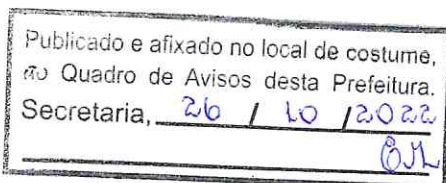 Publicado e afixado no local de costume,
no Quadro de Avisos desta Prefeitura.
Secretaria, 26 / 10 / 2022